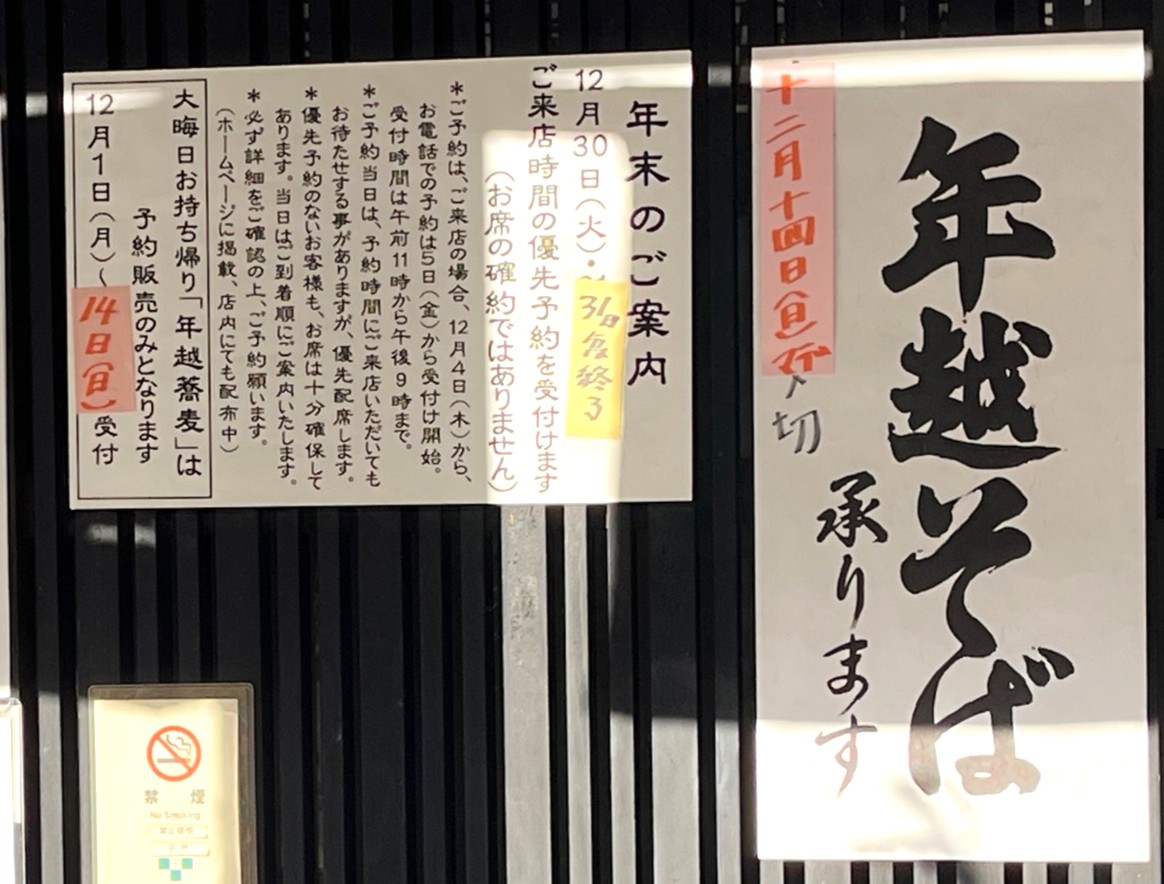 年越そば
承ります
十二月十四日(日)〆切
年末のご案内
12月30日(火)・
31日分終了
ご来店時間の優先予約を受付けます
(お席の確約ではありません)
*ご予約は、ご来店の場合、12月4日(木)から、
お電話での予約は5日(金)から受付け開始。
受付時間は午前11時から午後9時まで。
*ご予約当日は、予約時間にご来店いただいても
お待たせする事がありますが、優先配席します。
*優先予約のないお客様も、お席は十分確保して
あります。当日はご到着順にご案内いたします。
*必ず詳細をご確認の上、ご予約願います。
(ホームページに掲載、店内にても配布中)
大晦日お持ち帰り「年越蕎麦」は
予約販売のみとなります
12月1日(月)〜14日(日)受付
禁煙
No Smoking